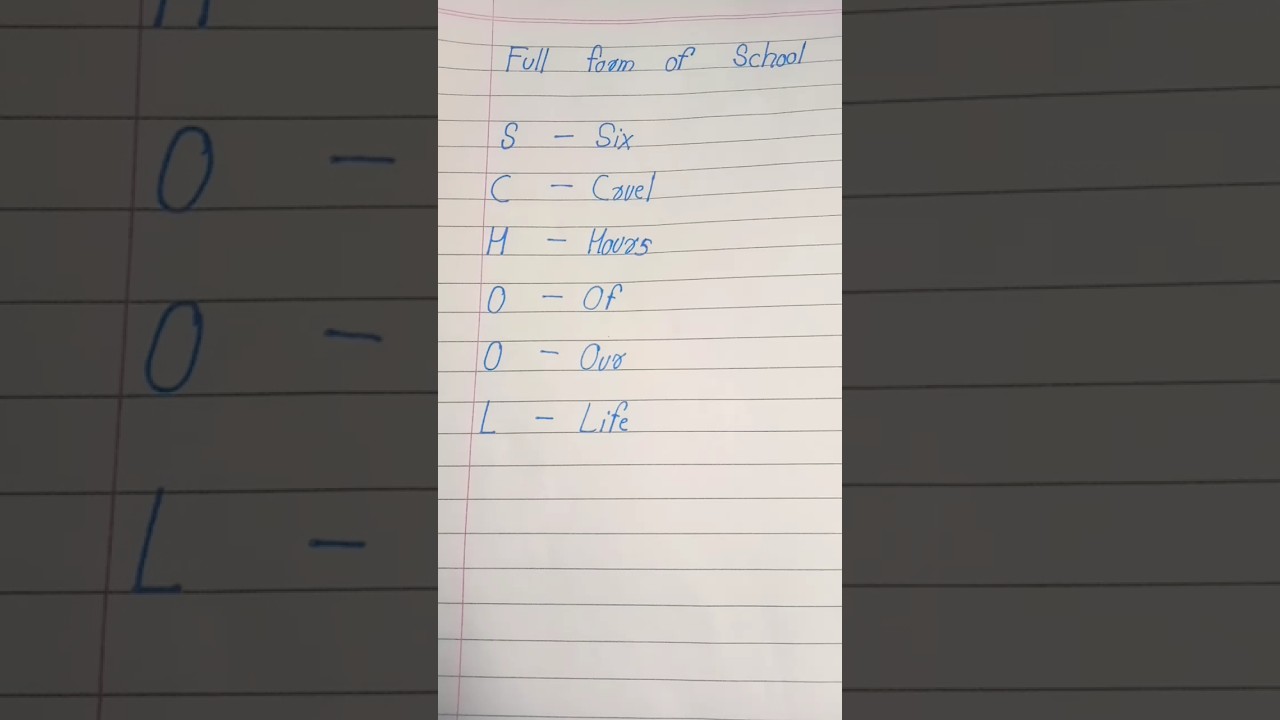 Full form of School
S - Six
C - Cruel
H - Hours
O - Of
O - Our
L - Life